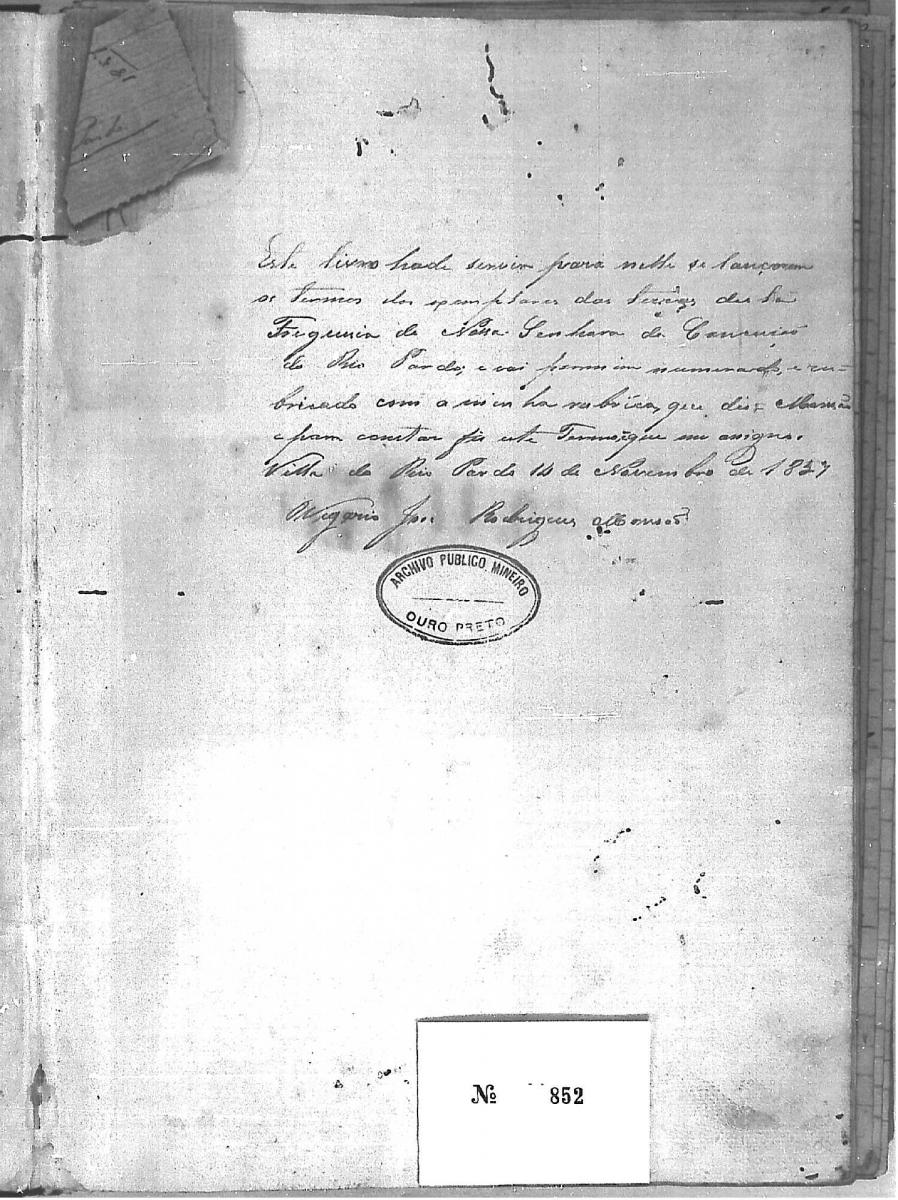 Este livro hade servir para nelle se lançarem
os termos dos exemplares das terras desta
Freguesia de Nossa Senhora da Conceição
do Rio Pardo, e vai por mim numerado, e ru-
bricado com a minha rubrica, que diz =
e para constar fis este Termo, que me asigno.
Villa do Rio Pardo 14 de Novembro de 1857
Vigario José Rodrigues
ARCHIVO PUBLICO MINEIRO
OURO PRETO
№ 852